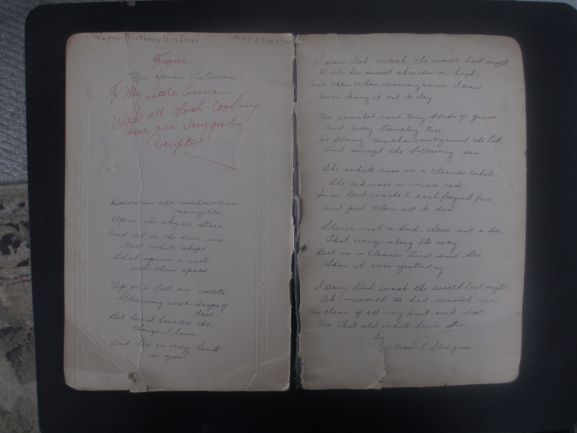 Happy Birthday Sis Dear
From
To My Little Annie
With all Good Cooking
Here are Very good
Receipts
Down in the meadow are
Up in the sky are stars
And out on the blue are
tall white ships
That
with their spars
Up on a hill are violets
Gleaming with drops of
dew
But best of all are the
things I love
And
in your
I saw God wash the world last night
With his sweet showers on high,
And then when morning came, I saw
Him hang it out to dry
He washed each tiny blade of grass
And every trembling tree,
He flung his showers against the hill,
And swept the billowing sea
The white rose is a cleaner white,
The red rose is more red
Since God washed each fragrant face
And put them all to bed
There's not a bird, there's not a bee,
That wings along the way
But is a cleaner bird and bee
Than it was yesterday
I saw God wash the world last night;
Ah! would He had washed me
As clean of all my dust and dirt
As that old white birch tree
by
William L. Stidger